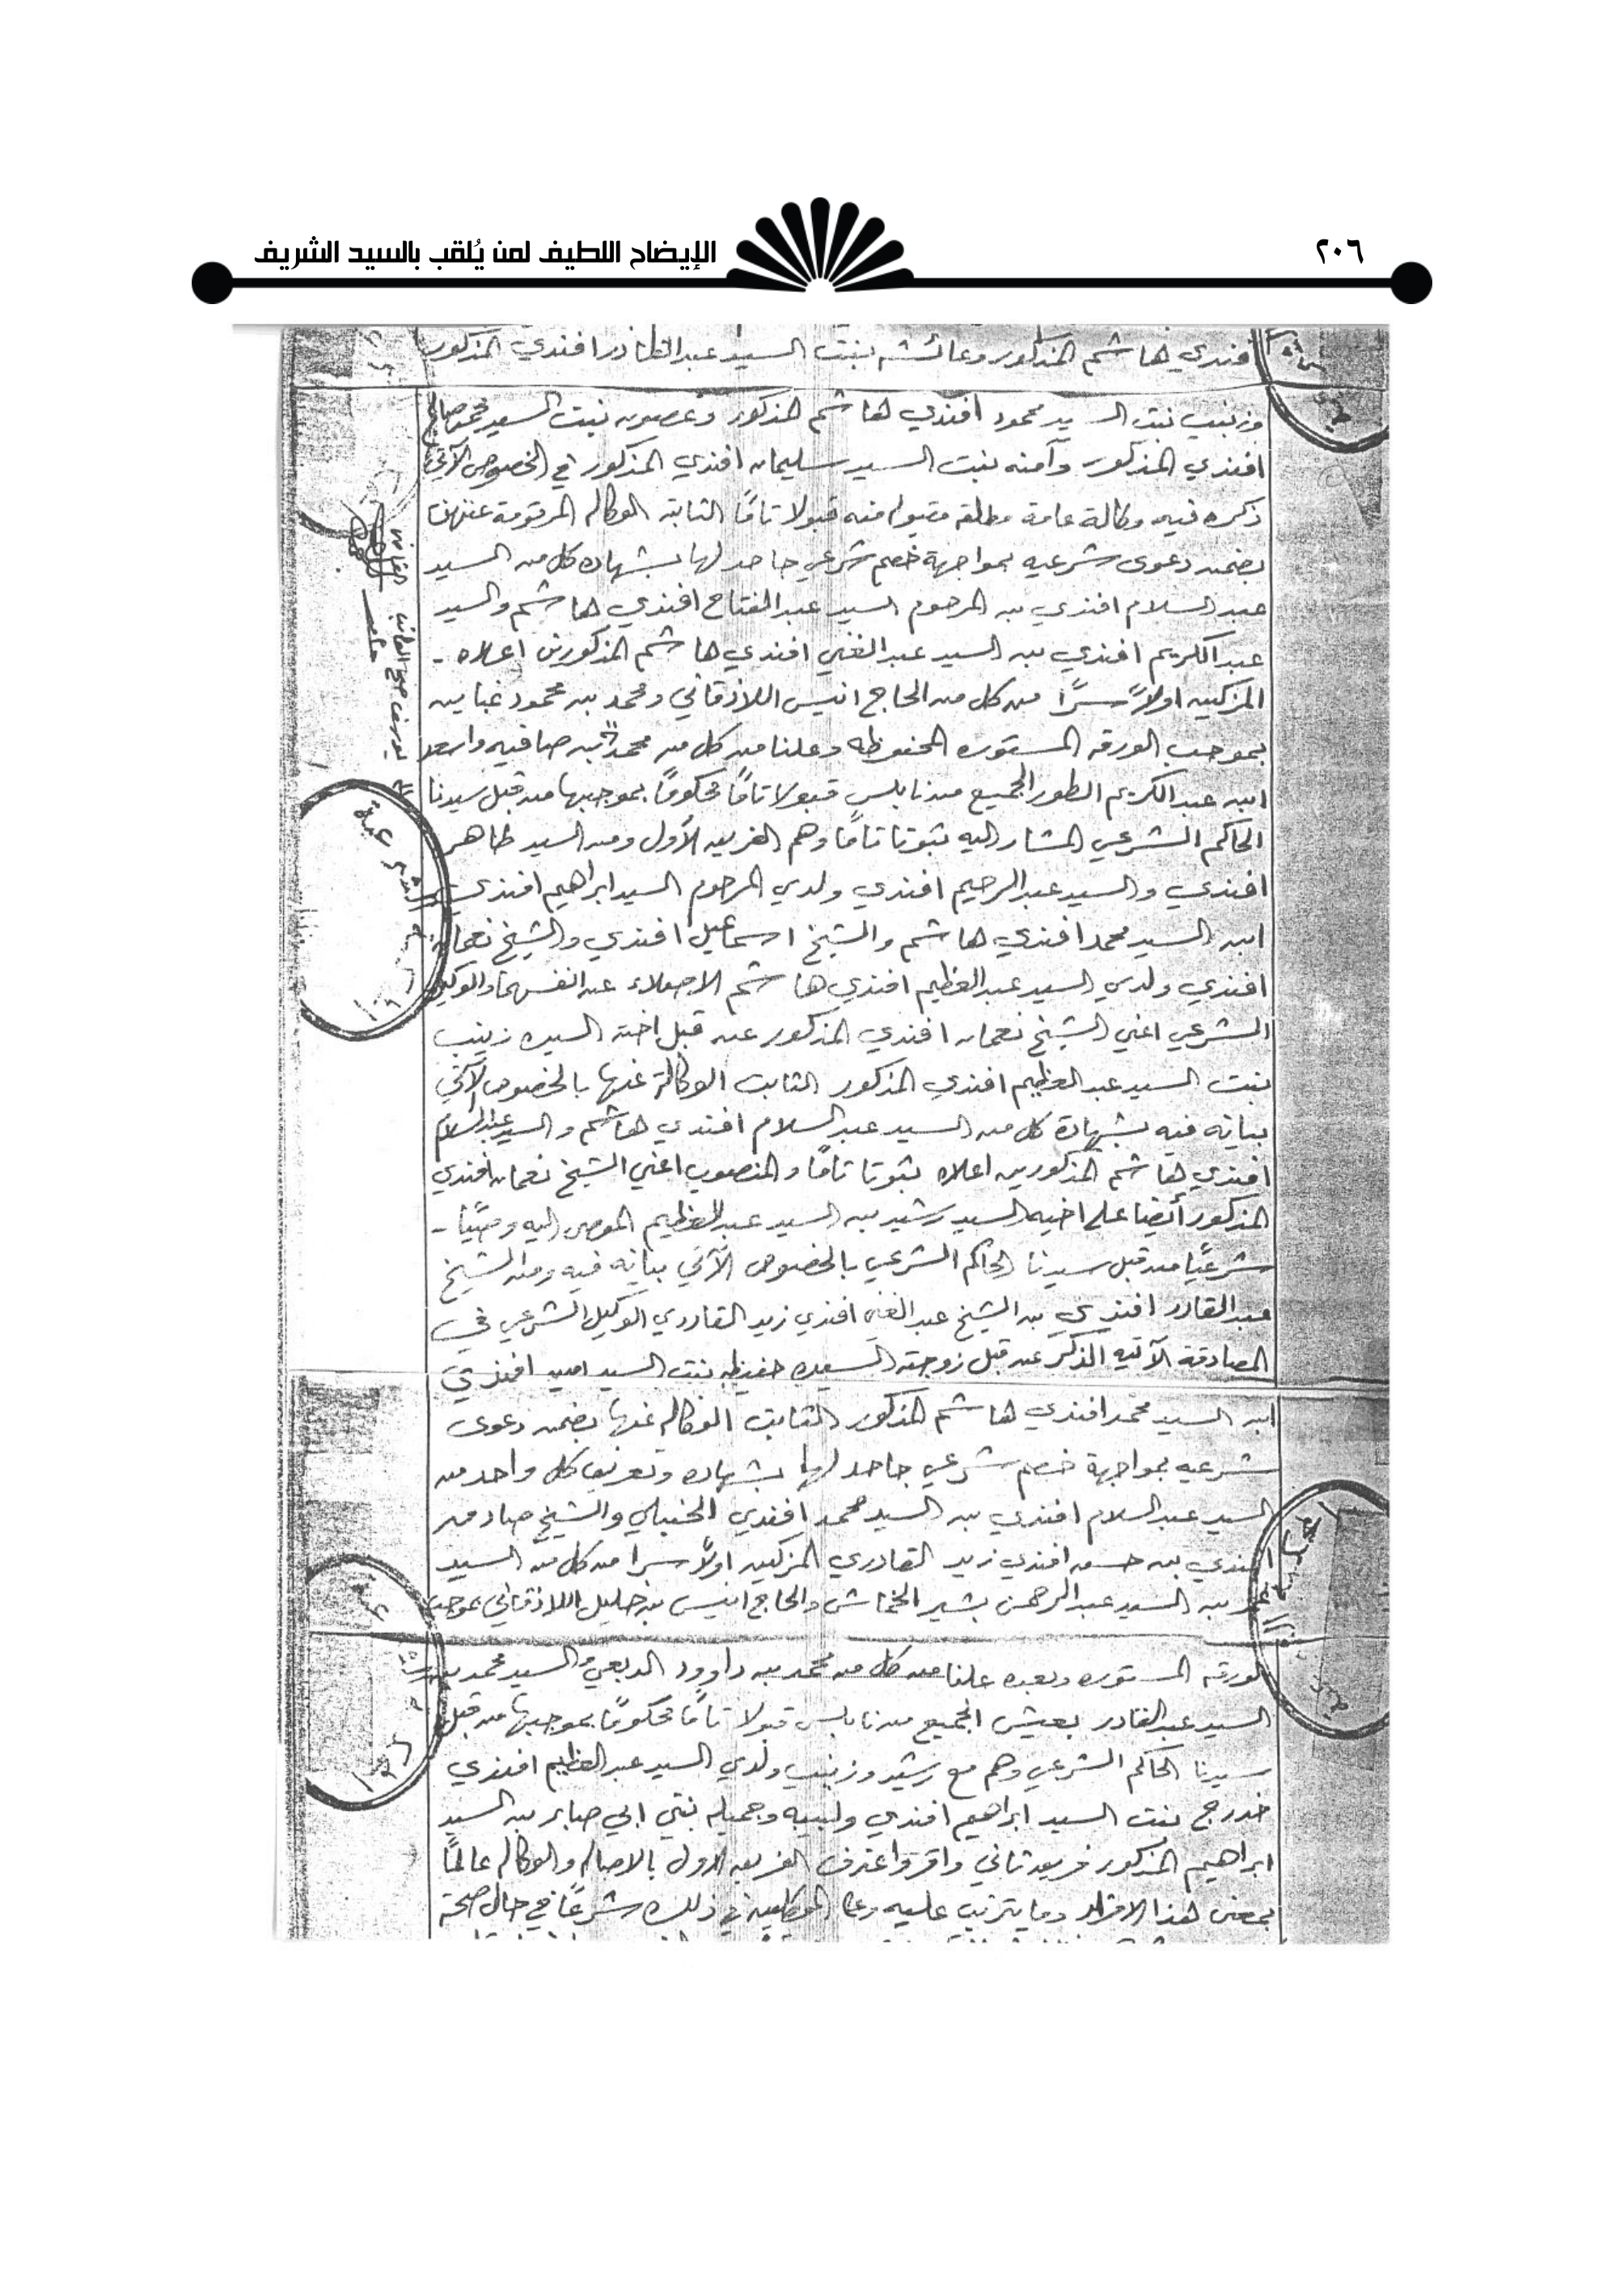 ٢٠٦
الإيضاح اللطيف لمن يُلقب بالسيد الشريف
افندي هاشم المذكور وعائشه بنت السيد عبد القادر افندي المذكور
وزينب بنت السيد محمود افندي هاشم المذكور وغصون بنت السيد محمد صالح
افندي المذكور وآمنه بنت السيد سليمان افندي المذكور في الخصوص الآتي
ذكره فيه وكالة عامة مطلقه مقبوله منه قبولا تامًا الثابته الوكاله المرقومة عنهن
بضمن دعوى شرعيه بمواجهة خصم شرعي جاحد لها بشهادة كل من السيد
عبد السلام افندي بن المرحوم السيد عبد الفتاح افندي هاشم والسيد
عبد الكريم افندي بن السيد عبد الغني افندي هاشم المذكورين اعلاه -
المزكين اولاً سرًا من كل من الحاج انيس اللاذقاني ومحمد بن محمود
بموجب الورقه المستوره المحفوظه وعلنا من كل من محمد بن صافيه واسعد
ابن عبد الكريم الطور الجميع من نابلس قبولا تامًا محكومًا بموجبها من قبل سيدنا
الحاكم الشرعي المشار اليه ثبوتا تامًا وهم الفريق الأول ومن السيد طاهر
افندي والسيد عبد الرحيم افندي ولدي المرحوم السيد ابراهيم افندي
ابن السيد محمد افندي هاشم والشيخ اسماعيل افندي والشيخ نعمان
افندي ولدي السيد عبد العظيم افندي هاشم الاصلاء عن انفسهما والوكيل
الشرعي اعني الشيخ نعمان افندي المذكور عن قبل اخته السيده زينب
بنت السيد عبد العظيم افندي المذكور الثابت الوكالة عنها بالخصوص الآتي
بيانه فيه بشهادة كل من السيد عبد السلام افندي هاشم والسيد عبد السلام
افندي هاشم المذكورين اعلاه ثبوتا تامًا والمنصوب اعني الشيخ نعمان افندي
المذكور أيضا على اخيه السيد رشيد بن السيد عبد العظيم الموصى اليه وصيًا -
شرعيًا من قبل سيدنا الحاكم الشرعي بالخصوص الآتي بيانه فيه ومن الشيخ
عبد القادر افندي بن الشيخ عبد الغني افندي زيد القادري الوكيل الشرعي في
المصادقة الآتيه الذكر عن قبل زوجته السيده حفيظه بنت السيد امين افندي
ابن السيد محمد افندي هاشم المذكور الثابت الوكاله عنها بضمن دعوى
شرعيه بمواجهة خصم شرعي جاحد لها بشهاده وتعريف كل واحد من
السيد عبد السلام افندي بن السيد محمد افندي الحنبلي والشيخ صادق
افندي بن حسن افندي زيد القادري المزكين اولاً سرا من كل من السيد
بن السيد عبد الرحمن بشير الخماش والحاج انيس بن خليل اللاذقاني بموجب
الورقه المستوره وبعده علنا من كل من محمد بن داوود الربعي والسيد محمد بن
السيد عبد القادر بعيش الجميع من نابلس قبولا تامًا محكومًا بموجبها من قبل
سيدنا الحاكم الشرعي وهم مع رشيد وزينب ولدي السيد عبد العظيم افندي
بنت السيد ابراهيم افندي ولبيبه وجميله بنتي ابي صابر بن السيد
ابراهيم المذكور فريق ثاني واقر واعترف الفريق الاول بالاصاله والوكاله عالمًا
بمعنى هذا الاقرار وما يترتب عليه وعلى الموكلين في ذلك شرعًا في حال صحة